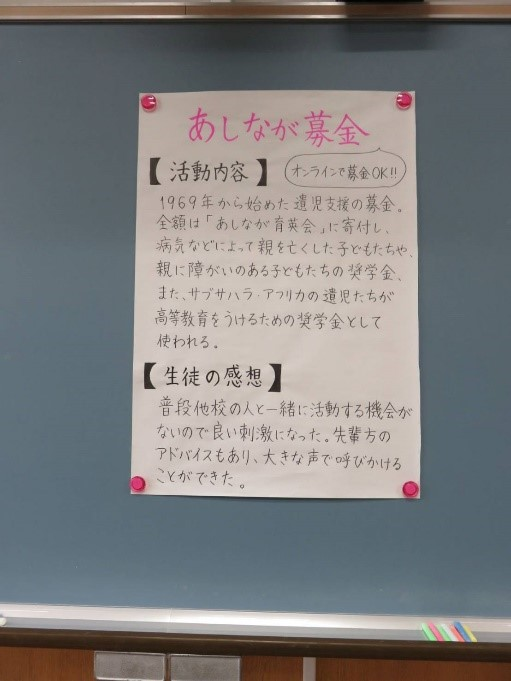 あしなが募金
【活動内容】
オンラインで募金OK!!
1969年から始めた遺児支援の募金。
全額は「あしなが育英会」に寄付し、
病気などによって親を亡くした子どもたちや、
親に障がいのある子どもたちの奨学金、
また、サブサハラ・アフリカの遺児たちが
高等教育をうけるための奨学金として
使われる。
【生徒の感想】
普段他校の人と一緒に活動する機会が
ないので良い刺激になった。先輩方の
アドバイスもあり、大きな声で呼びかける
ことができた。